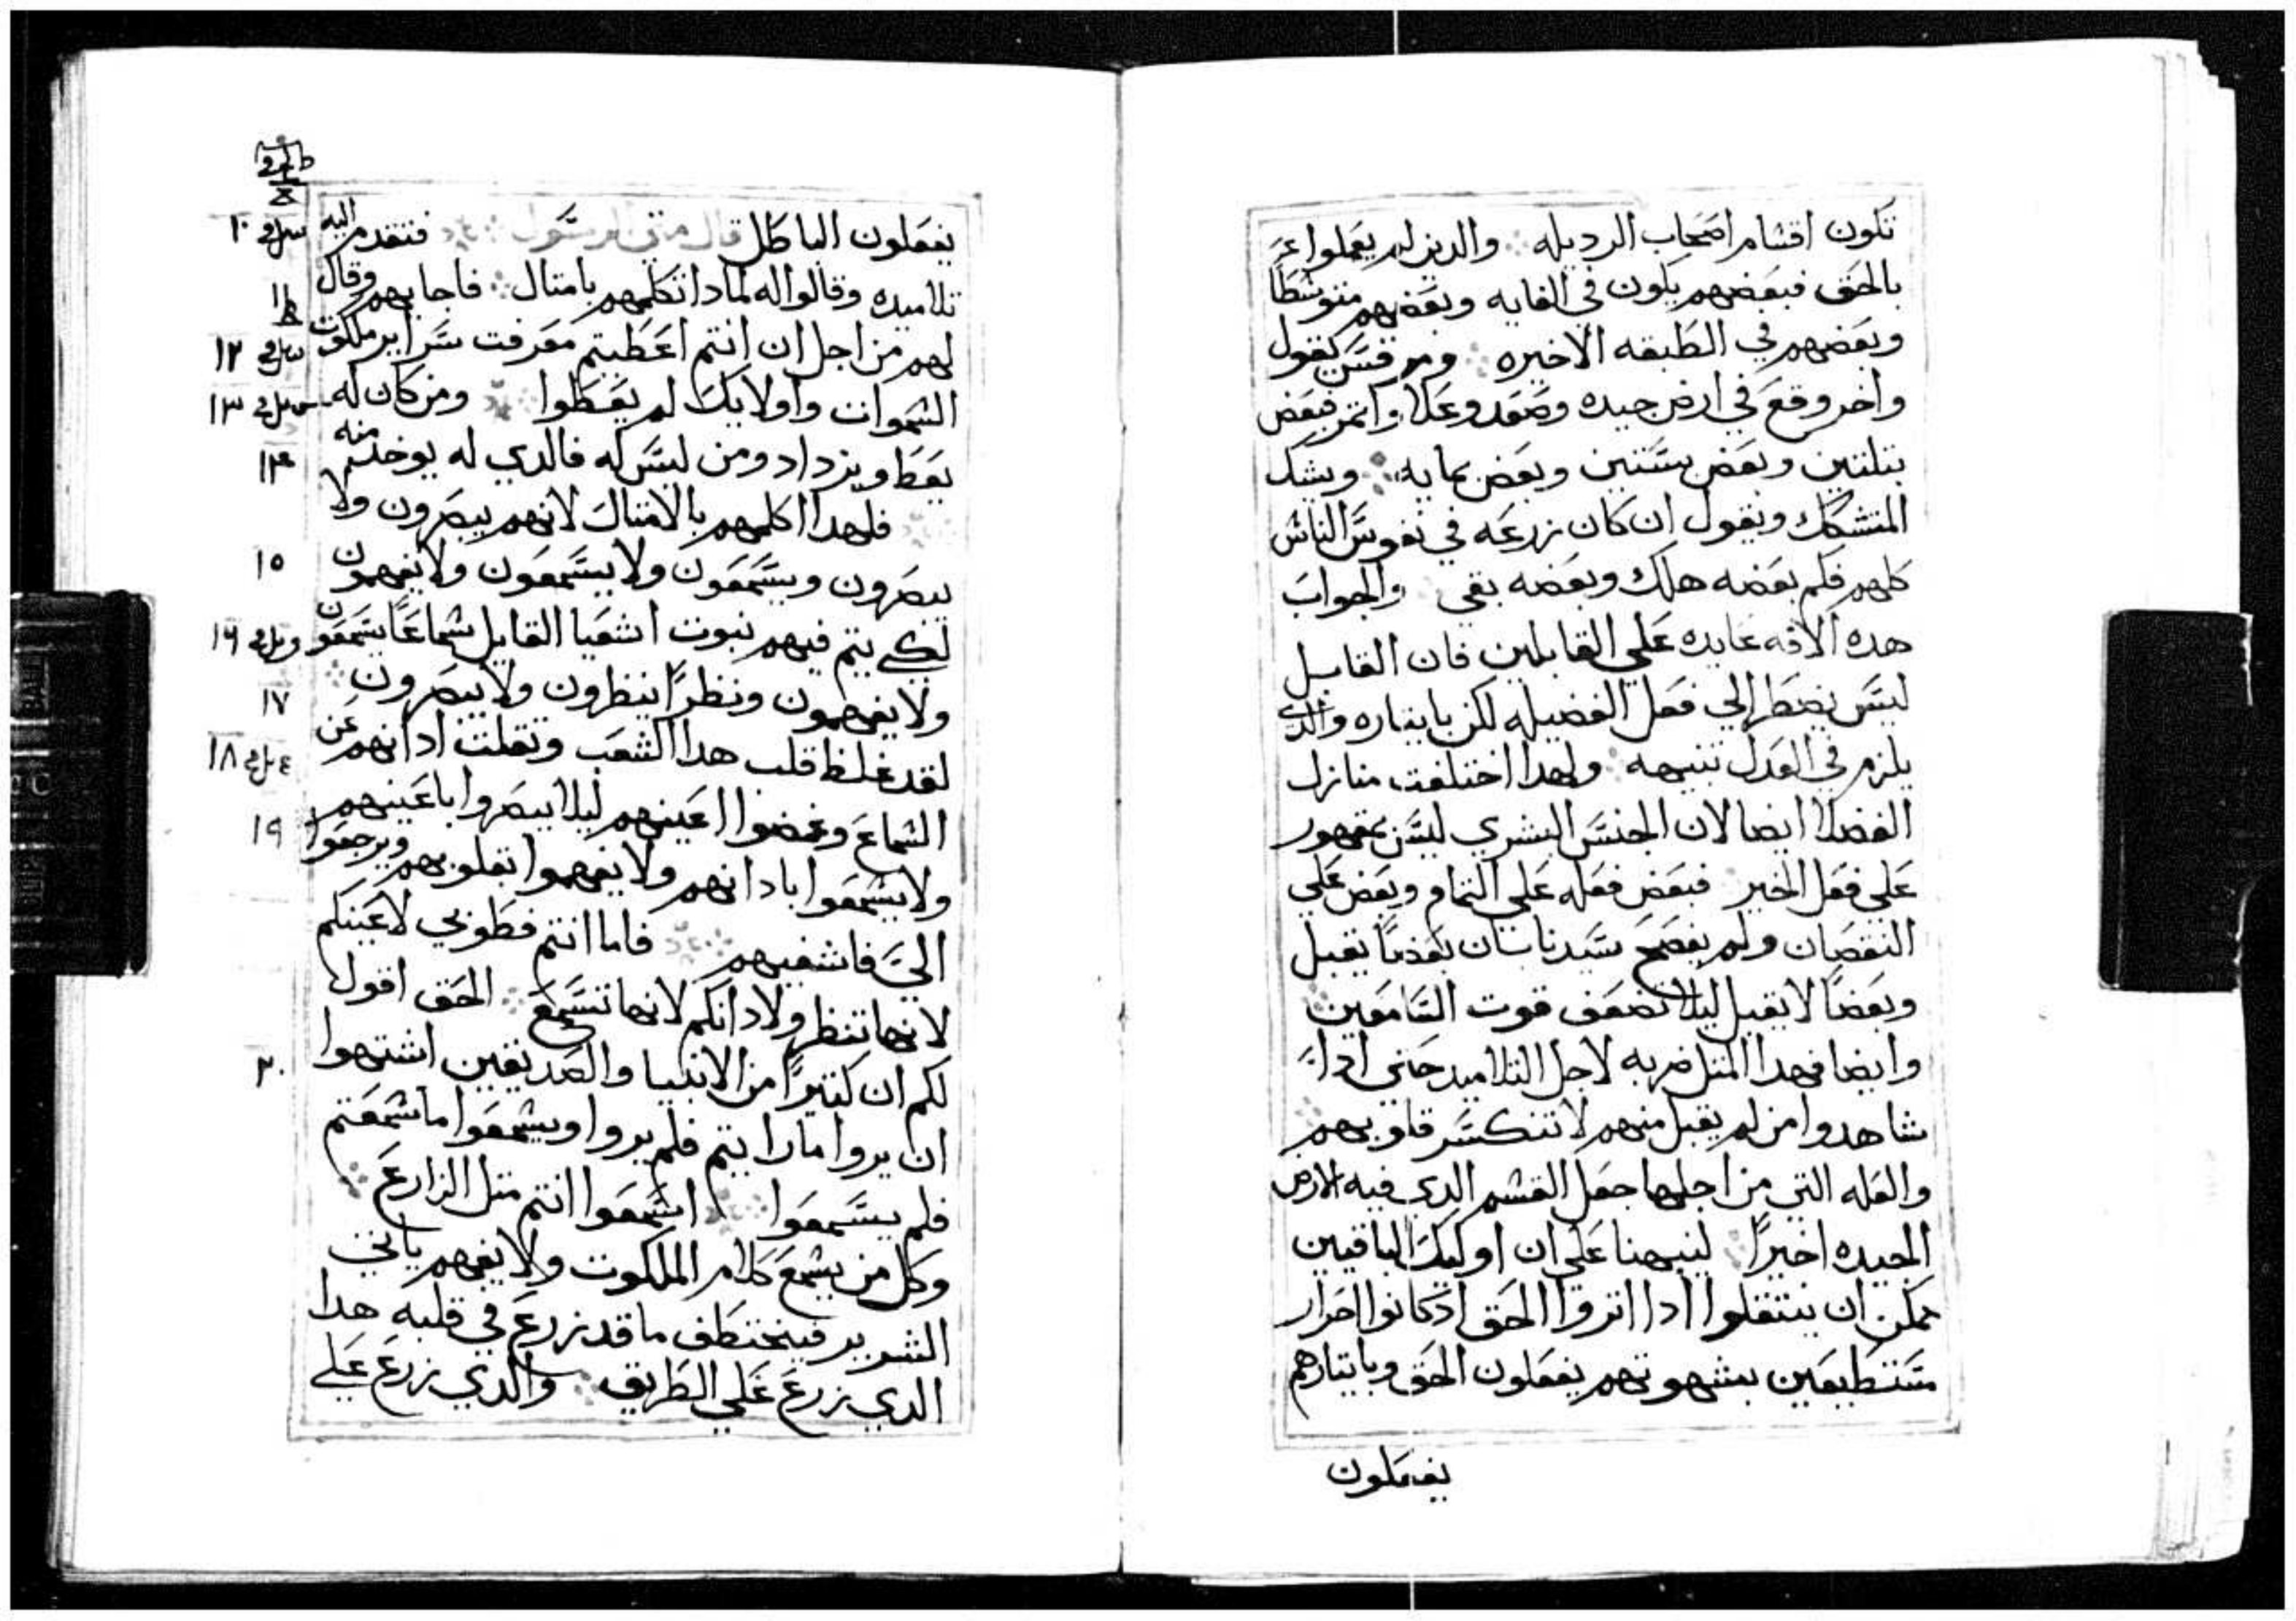 تكون اقسام اصحاب الرديله والدين لم يعملوا
بالحق فبعضهم يكون في الغايه وبعضهم متوسطا
وبعضهم في الطبقه الاخيره ومر قس يقول
واخر وقع في ارض جيده وصعد وعلا واتمر فبعض
بتلتين وبعض بستين وبعض بمايه ويشك
المتشكك ويقول ان كان زرعه في نفوس الناس
كلهم فلم بعضه هلك وبعضه بقي والجواب
هده الافه عايده علي القابلين فان القابل
ليس يضطر الي فعل الفضيله لكن بايتاره والدي
يلزم في العدل تنبيهه ولهدا اختلفت منازل
الفضلا ايضا لان الجنس البشري ليس بمقهور
علي فعل الخير فبعض فعله علي التمام وبعض علي
النقصان ولم يفصح سيدنا بان بعضا يقبل
وبعضا لا يقبل ليلا تضعف قوت السامعين
وايضا فهدا المتل ضربه لاجل التلاميد حتي ادا
شاهدوا من لم يقبل منهم لا تنكسر قلوبهم
والعله التي من اجلها جعل القسم الدي فيه الارض
الجيده اخيرا لينبهنا علي ان اوليك الباقيين
يمكن ان ينتقلوا ادا اتروا الحق ادكانوا احرار
مستطيعين بشهوتهم يفعلون الحق وبايتارهم
يفعلون
يفعلون الباطل قال متي الرسول فتقدم اليه
تلاميده وقالوا له لمادا تكلمهم بامتال فاجابهم وقال
لهم من اجل ان انتم اعطيتم معرفت سراير ملكوت
السموات واولايك لم يعطوا ومن كان له
يعطا ويزداد ومن ليس له فالدي له يوخد منه
فلهدا اكلمهم بالامتال لانهم يبصرون ولا
يبصرون ويسمعون ولا يسمعون ولا يفهمون
لكي يتم فيهم نبوت اشعيا القايل سماعا يسمعون
ولا يفهمون ونظرا ينظرون ولا يبصرون
لقد غلظ قلب هدا الشعب وتقلت ادانهم عن
السماع وغمضوا اعينهم ليلا يبصروا باعينهم
ولا يسمعوا بادانهم ولا يفهموا بقلوبهم ويرجعوا
الي فاشفيهم فاما انتم فطوبي لاعينكم
لانها تنظر ولادانكم لانها تسمع الحق اقول
لكم ان كتيرا من الانبيا والصديقين اشتهوا
ان يروا ما رايتم فلم يروا ويسمعوا ما سمعتم
فلم يسمعوا اسمعوا انتم متل الزارع
وكل من يسمع كلام الملكوت ولا يفهم ياتي
الشرير فيختطف ما قد زرع في قلبه هدا
الدي زرع علي الطريق والدي زرع علي
١٠
١١
١٢
١٣
١٤
١٥
١٦
١٧
١٨
١٩
٢٠